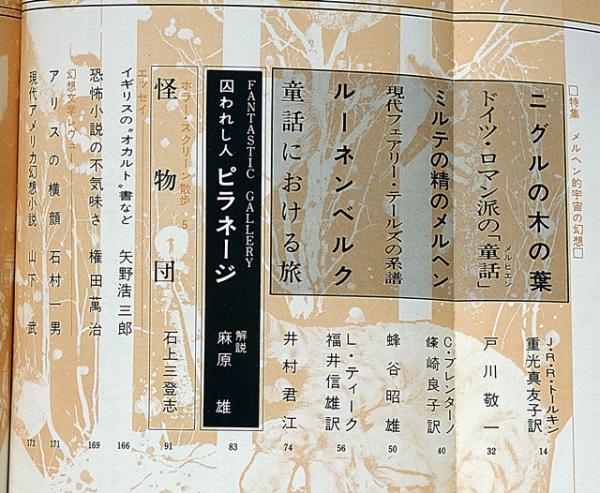 □特集 メルヘン的宇宙の幻想□
ニグルの木の葉 J・R・R・トールキン 重光真友子訳 14
ドイツ・ロマン派の「童話」メルヒェン 戸川敬一 32
ミルテの精のメルヘン C・ブレンターノ 篠崎良子訳 40
現代フェアリー・テールズの系譜 蜂谷昭雄 50
ルーネンベルク L・ティーク 福井信雄訳 56
童話における旅 井村君江 74
FANTASTIC GALLERY
囚われし人 ピラネージ 解説 麻原雄 83
ホラー・スクリーン散歩 5
怪物団 石上三登志 91
エッセイ
イギリスの〝オカルト〟書など 矢野浩三郎 166
恐怖小説の不気味さ 権田萬治 169
幻想文学レヴュー
アリスの横顔 石村一男 171
現代アメリカ幻想小説 山下武 172